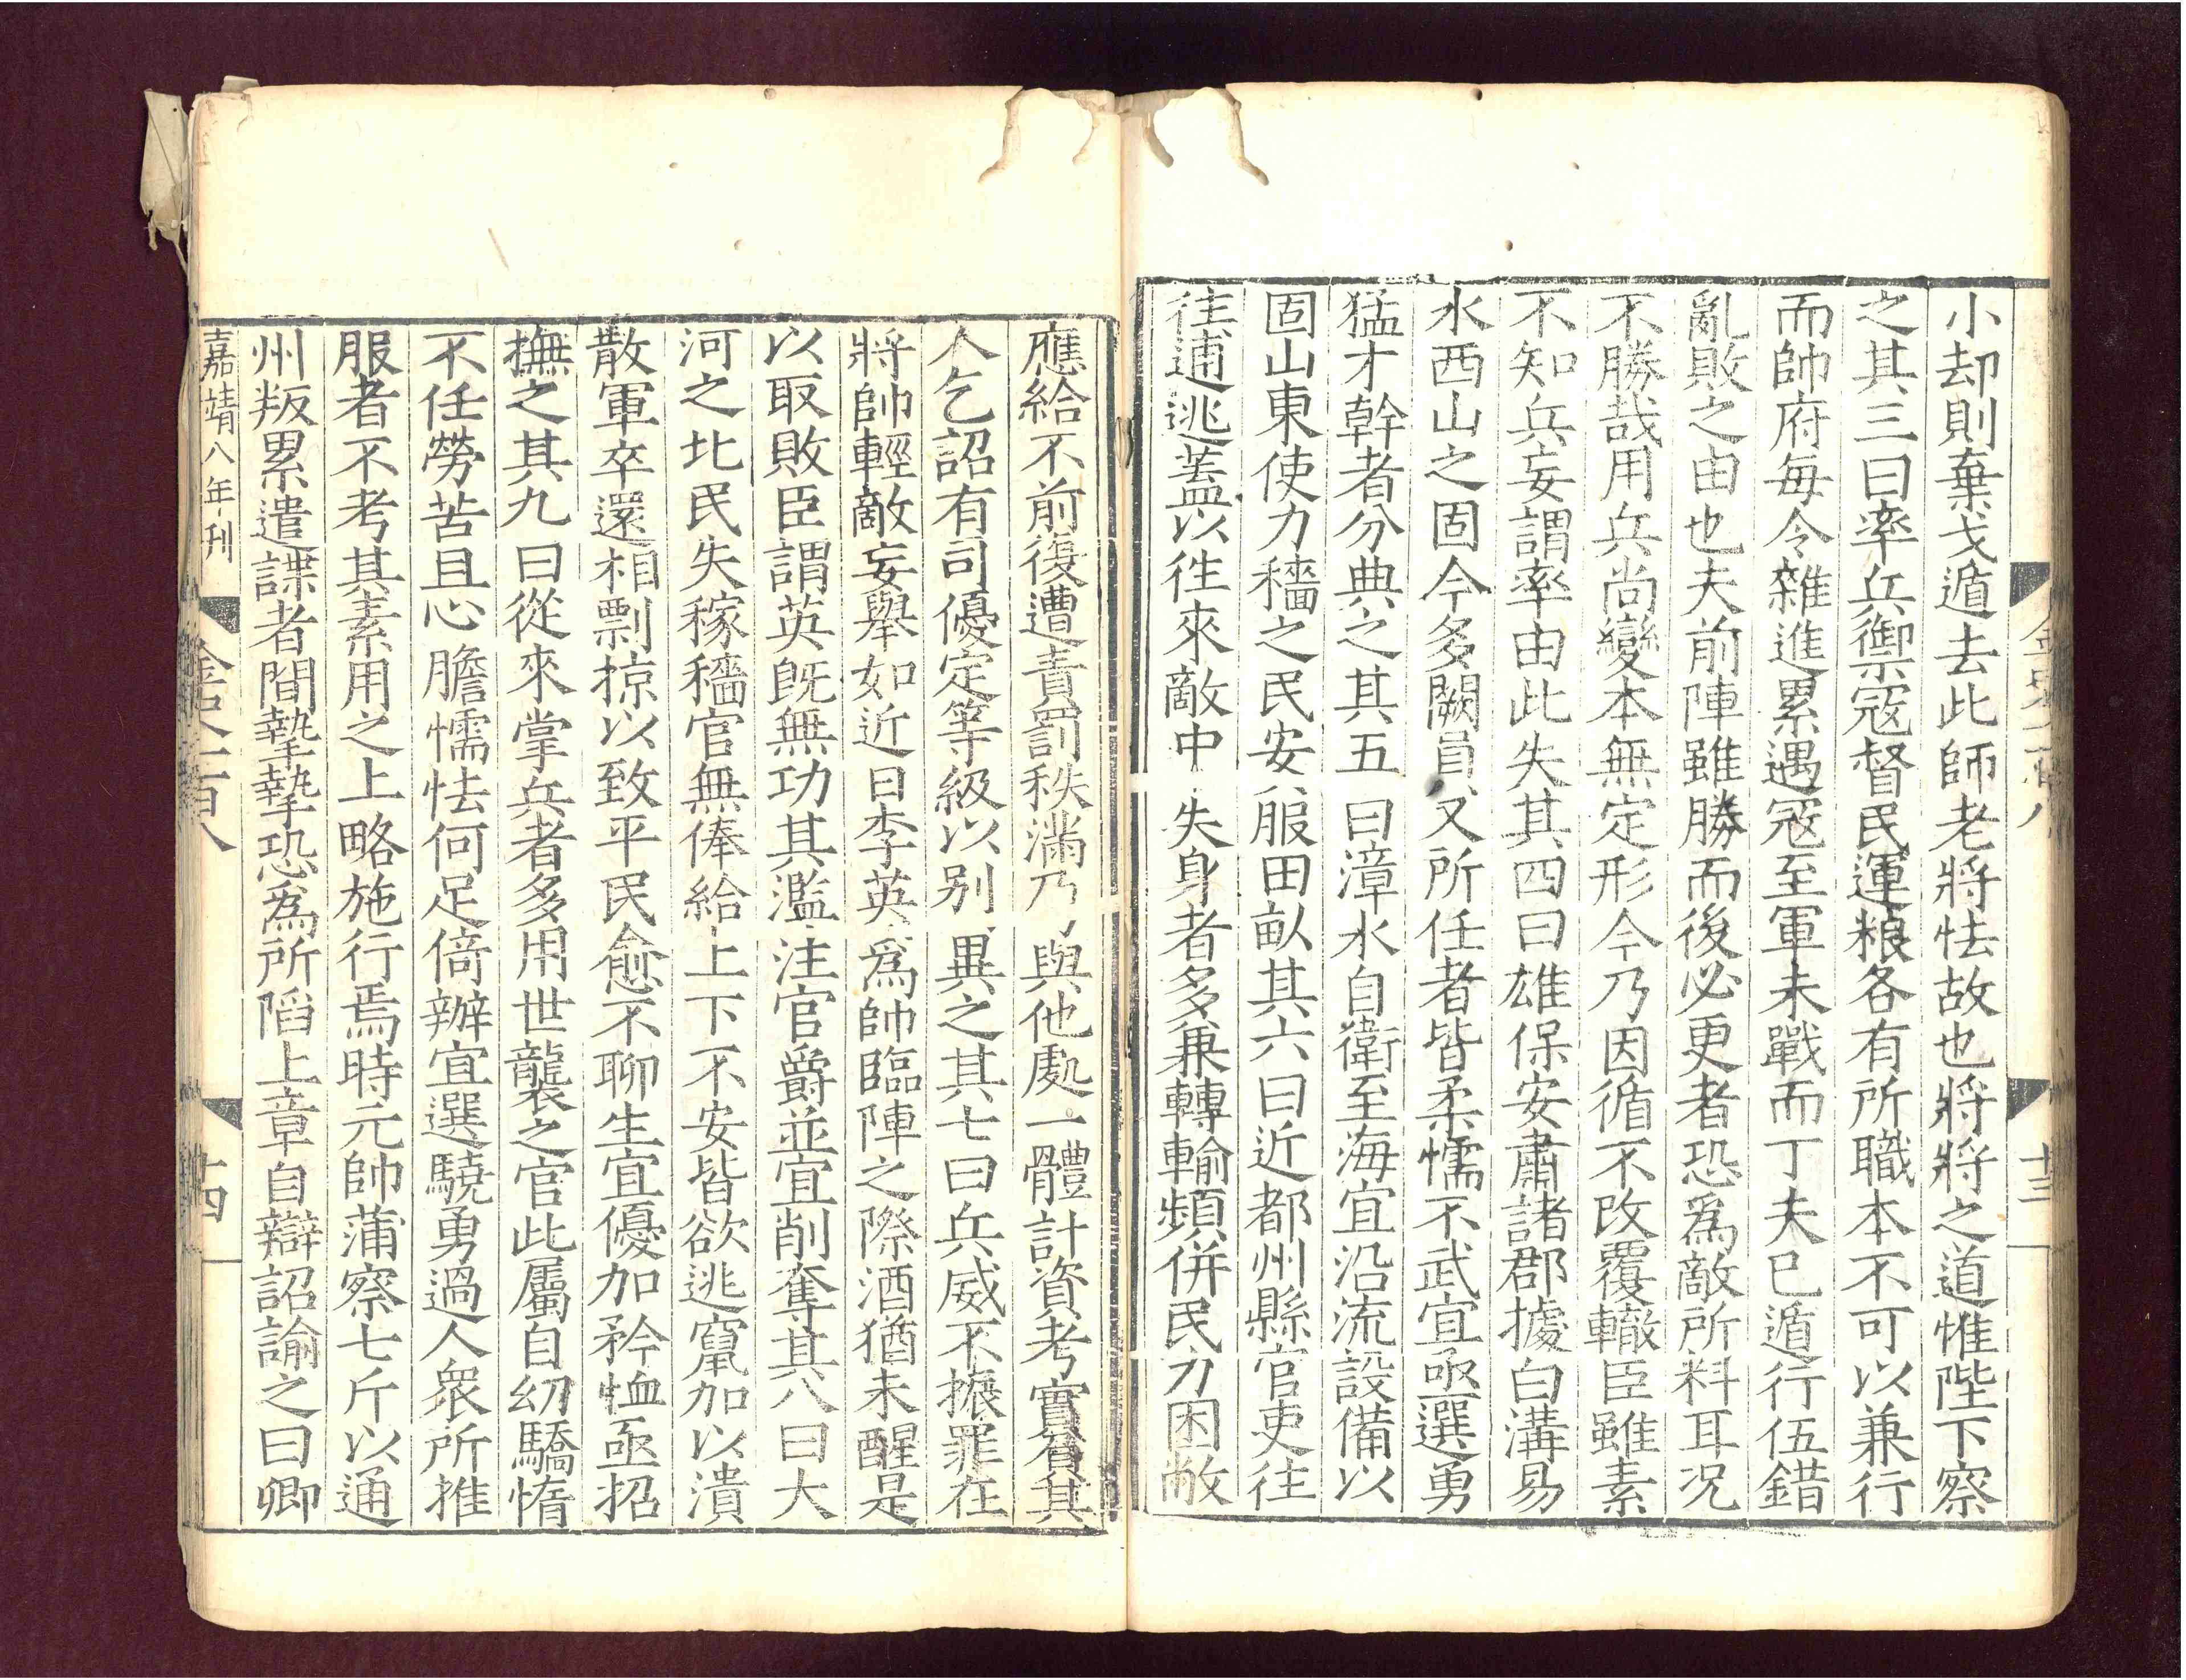 小却則棄戈遁去此師老將怯故也將將之道惟陛下察
之其三曰率兵禦寇督民運粮各有所職本不可以兼行
而帥府每令雜進累遇寇至軍未戰而丁夫已遁行伍錯
亂敗之由也夫前陣雖勝而後必更者恐爲敵所料耳况
不勝哉用兵尚變本無定形今乃因循不改覆轍臣雖素
不知兵妄謂率由此失其四曰雄保安肅諸郡據白溝易
水西山之固今多闕員又所任者皆柔懦不武宜亟選勇
猛才幹者分典之其五曰漳水自衛至海宜沿流設備以
固山東使力穡之民安服田畝其六曰近都州縣官吏往
往逋逃蓋以徃來敵中失身者多兼轉輸頻併民力困敝
應給不前復遭責罰秩滿乃與他處一體計資考實負其
人乞詔有司優定等級以别異之其七曰兵威不振罪在
將帥輕敵妄舉如近日李英爲帥臨陣之際酒猶未醒是
以取敗臣謂英旣無功其濫注官爵並宜削奪其八曰大
河之北民失稼穡官無俸給上下不安皆欲逃竄加以潰
散軍卒還相剽掠以致平民愈不聊生宜優加矜恤亟招
撫之其九曰從來掌兵者多用世襲之官此屬自㓜驕惰
不任勞苦且心膽懦怯何足倚辦宜選驍勇過人衆所推
服者不考其素用之上略施行焉時元帥蒲察七斤以通
州叛累遣諜者間摯摯恐爲所䧟上章自辯詔諭之曰卿
嘉靖八年刊
金史一百八
十四
十三